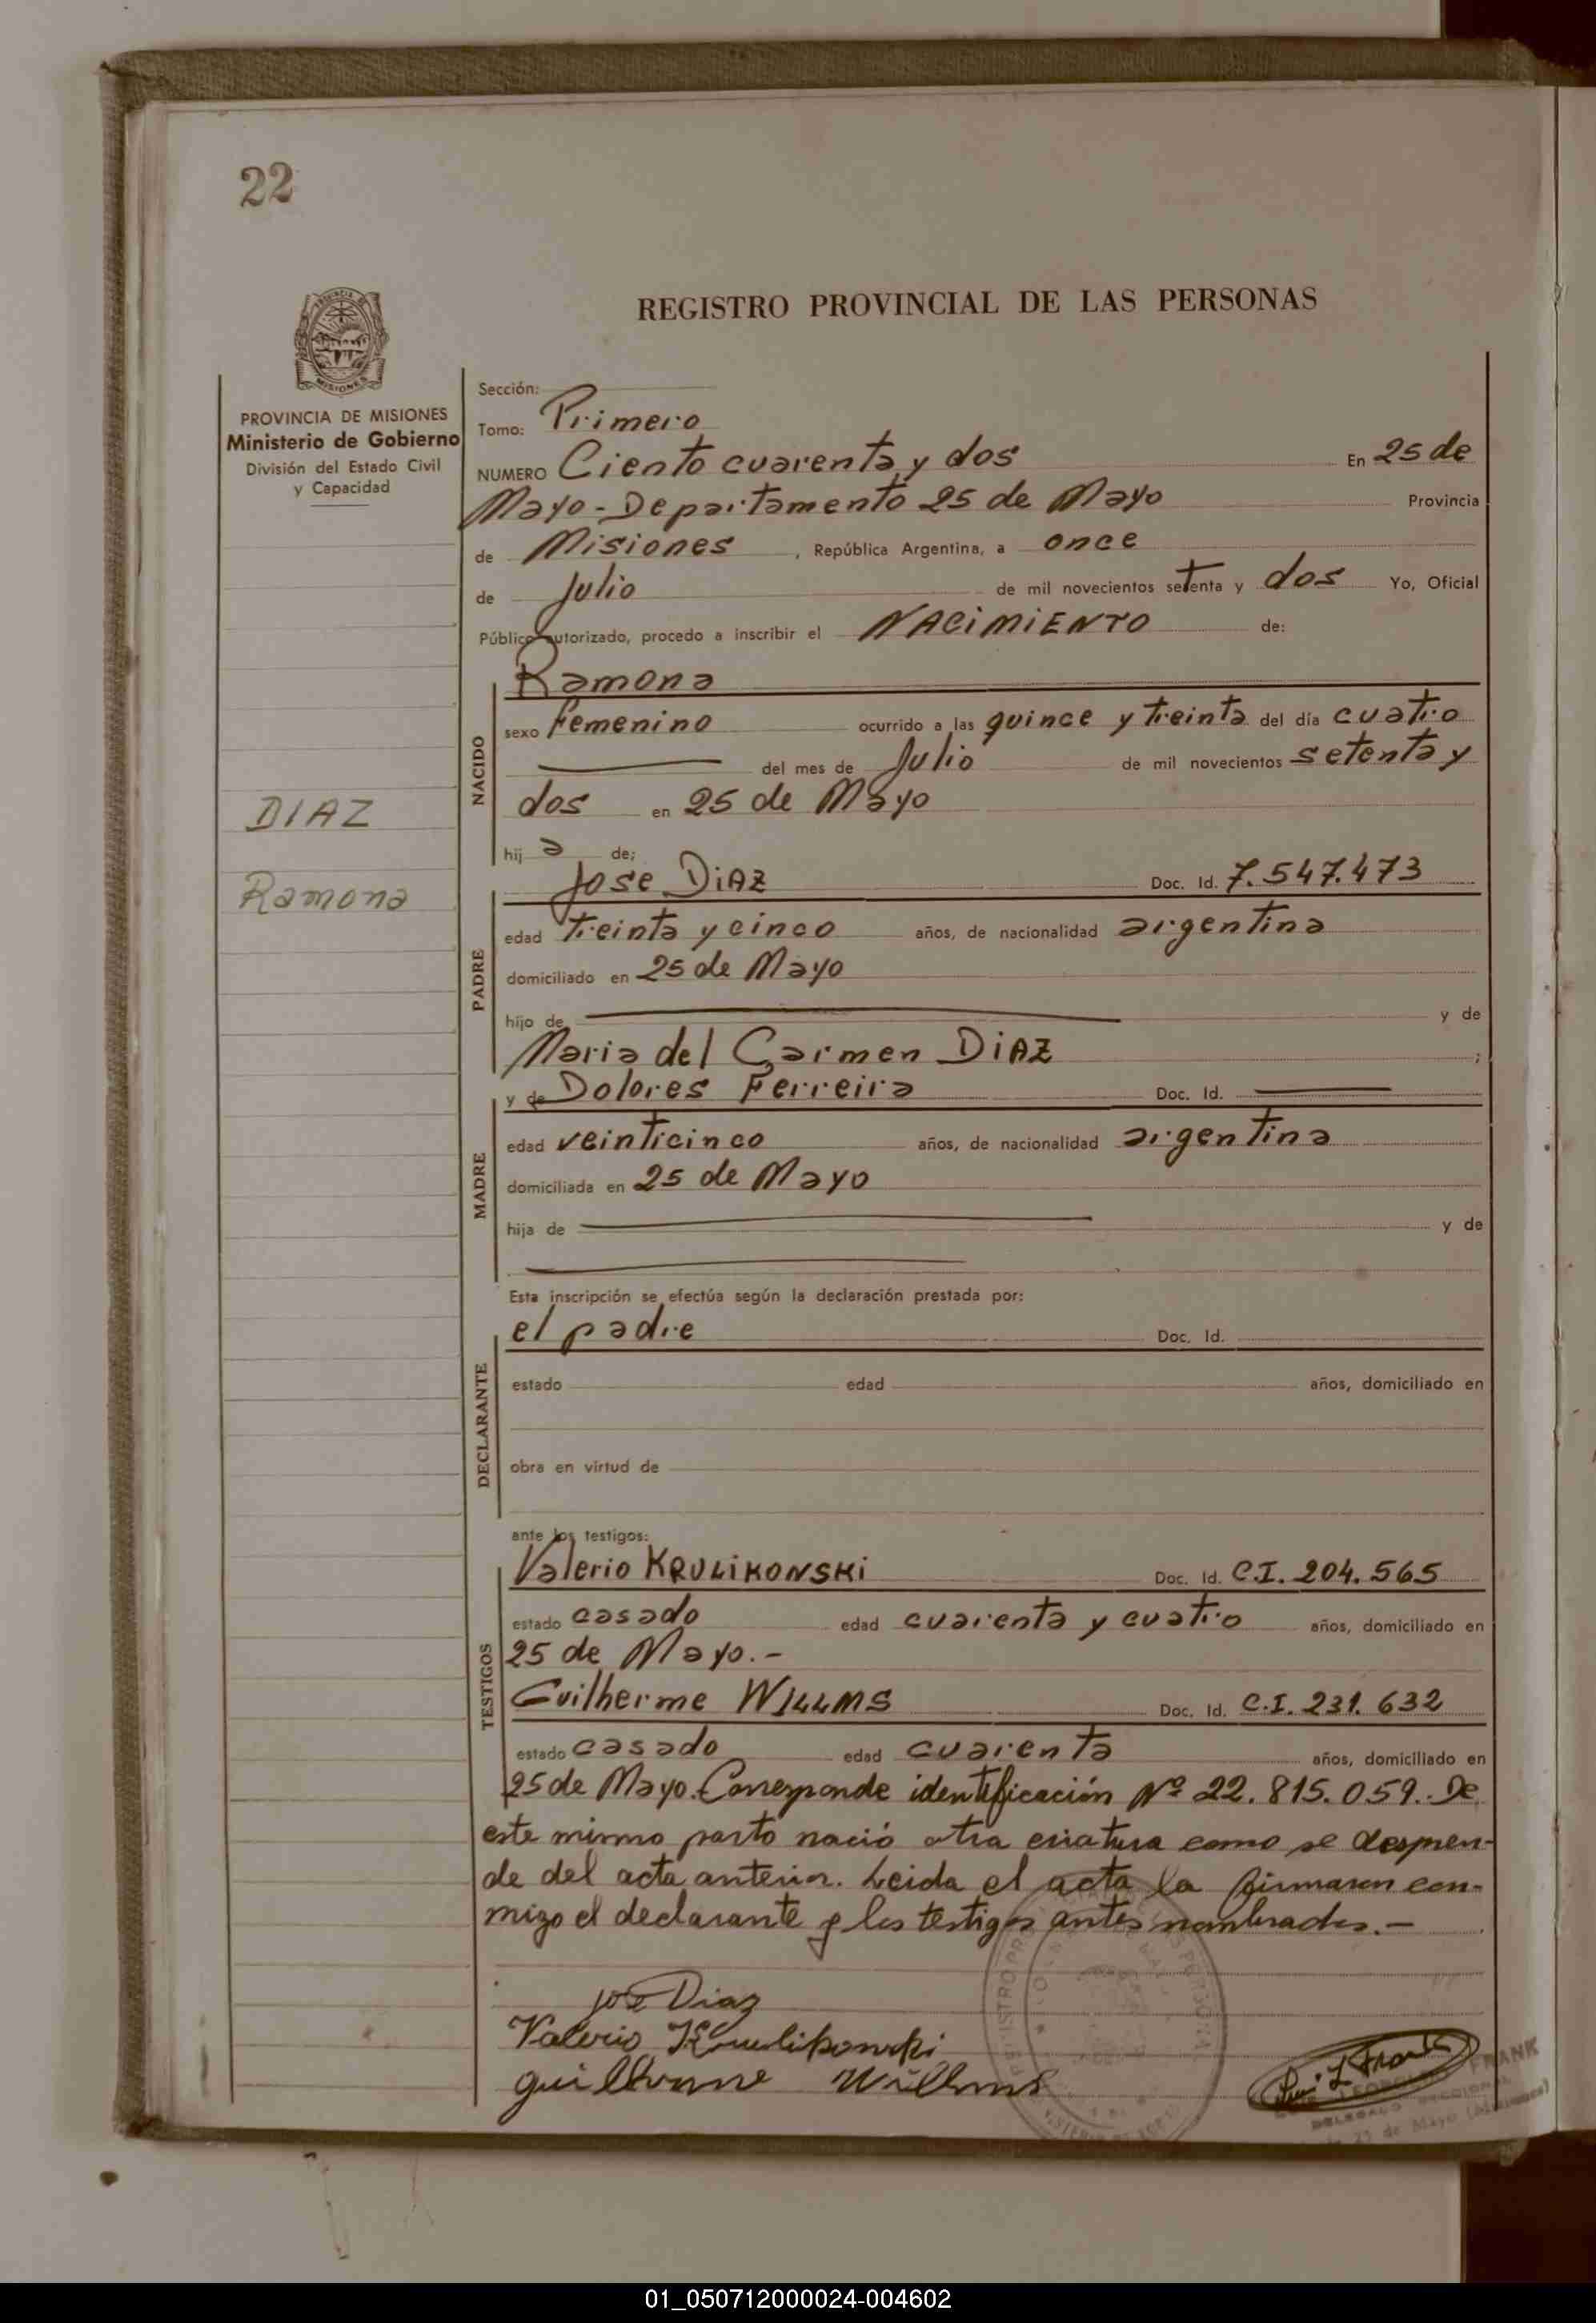 22
REGISTRO PROVINCIAL DE LAS PERSONAS
MISIONES
PROVINCIA DE MISIONES
Ministerio de Gobierno
División del Estado Civil
y Capacidad
DIAZ
Ramona
Sección:
Tomo: Primero
NUMERO Ciento cuarenta y dos En 25 de
Mayo - Departamento 25 de Mayo Provincia
de Misiones, República Argentina, a once
de Julio de mil novecientos setenta y dos Yo, Oficial
Público autorizado, procedo a inscribir el NACIMIENTO de:
Ramona
NACIDO
sexo femenino ocurrido a las quince y treinta del día cuatro
del mes de Julio de mil novecientos setenta y
dos en 25 de Mayo
hij a de;
Jose DiAZ Doc. Id. 7.547.473
PADRE
edad treinta y cinco años, de nacionalidad argentina
domiciliado en 25 de Mayo
hijo de y de
Maria del Carmen DiAZ ;
y de Dolores Ferreira Doc. Id.
MADRE
edad veinticinco años, de nacionalidad argentina
domiciliada en 25 de Mayo
hija de y de
Esta inscripción se efectúa según la declaración prestada por:
el padre Doc. Id.
DECLARANTE
estado edad años, domiciliado en
obra en virtud de
ante los testigos:
Valerio KRULIKONSKI Doc. Id. C.I. 204.565
TESTIGOS
estado casado edad cuarenta y cuatro años, domiciliado en
25 de Mayo.-
Guilherme WILLMS Doc. Id. C.I. 231.632
estado casado edad cuarenta años, domiciliado en
25 de Mayo.- Corresponde identificación Nº 22.815.059.- De
este mismo parto nació otra criatura como se despren-
de del acta anterior. Leida el acta la firmaron con-
migo el declarante y los testigos antes nombrados.-
José Diaz
Valerio Krulikowski
Guilherme Willms
FRANK
DELEGADO SECCIONAL
25 de Mayo (Misiones)
01_050712000024-004602